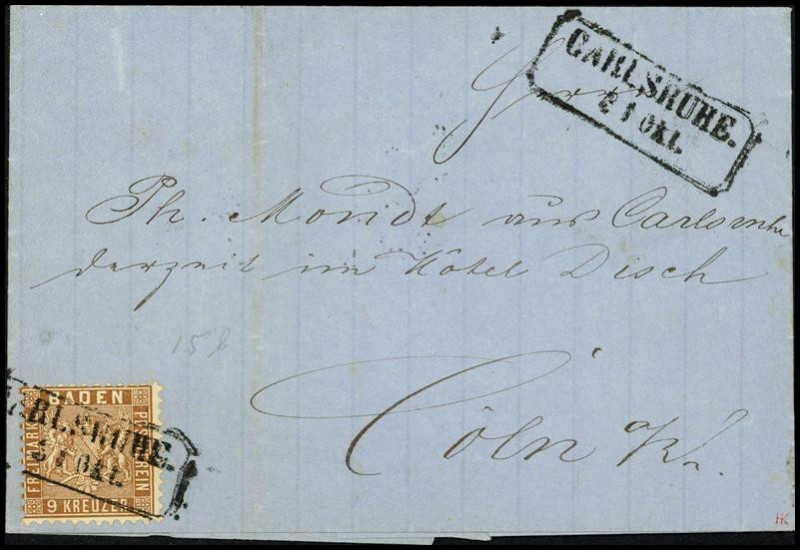 CARLSRUHE.
1 Okt.
Herrn
Ph. Mondt aus Carlsruhe
derzeit im Hôtel Disch
Cöln a/Rh.
15 b
BADEN
FREIMARKE
POSTVEREIN
9 KREUZER
CARLSRUHE.
1 Okt.
HK